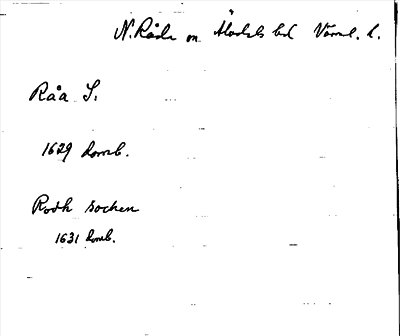 N. Råda sn Älvdals hd Värml. l.
Råa S.
1629 Domb.
Rodh socken
1631 Domb.